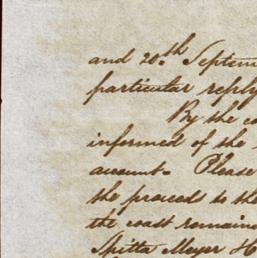 and 20th Septem
particular reply
By the co
informed of the
account. Please
the proceeds to the
the coast remain
Spitta Meyer H